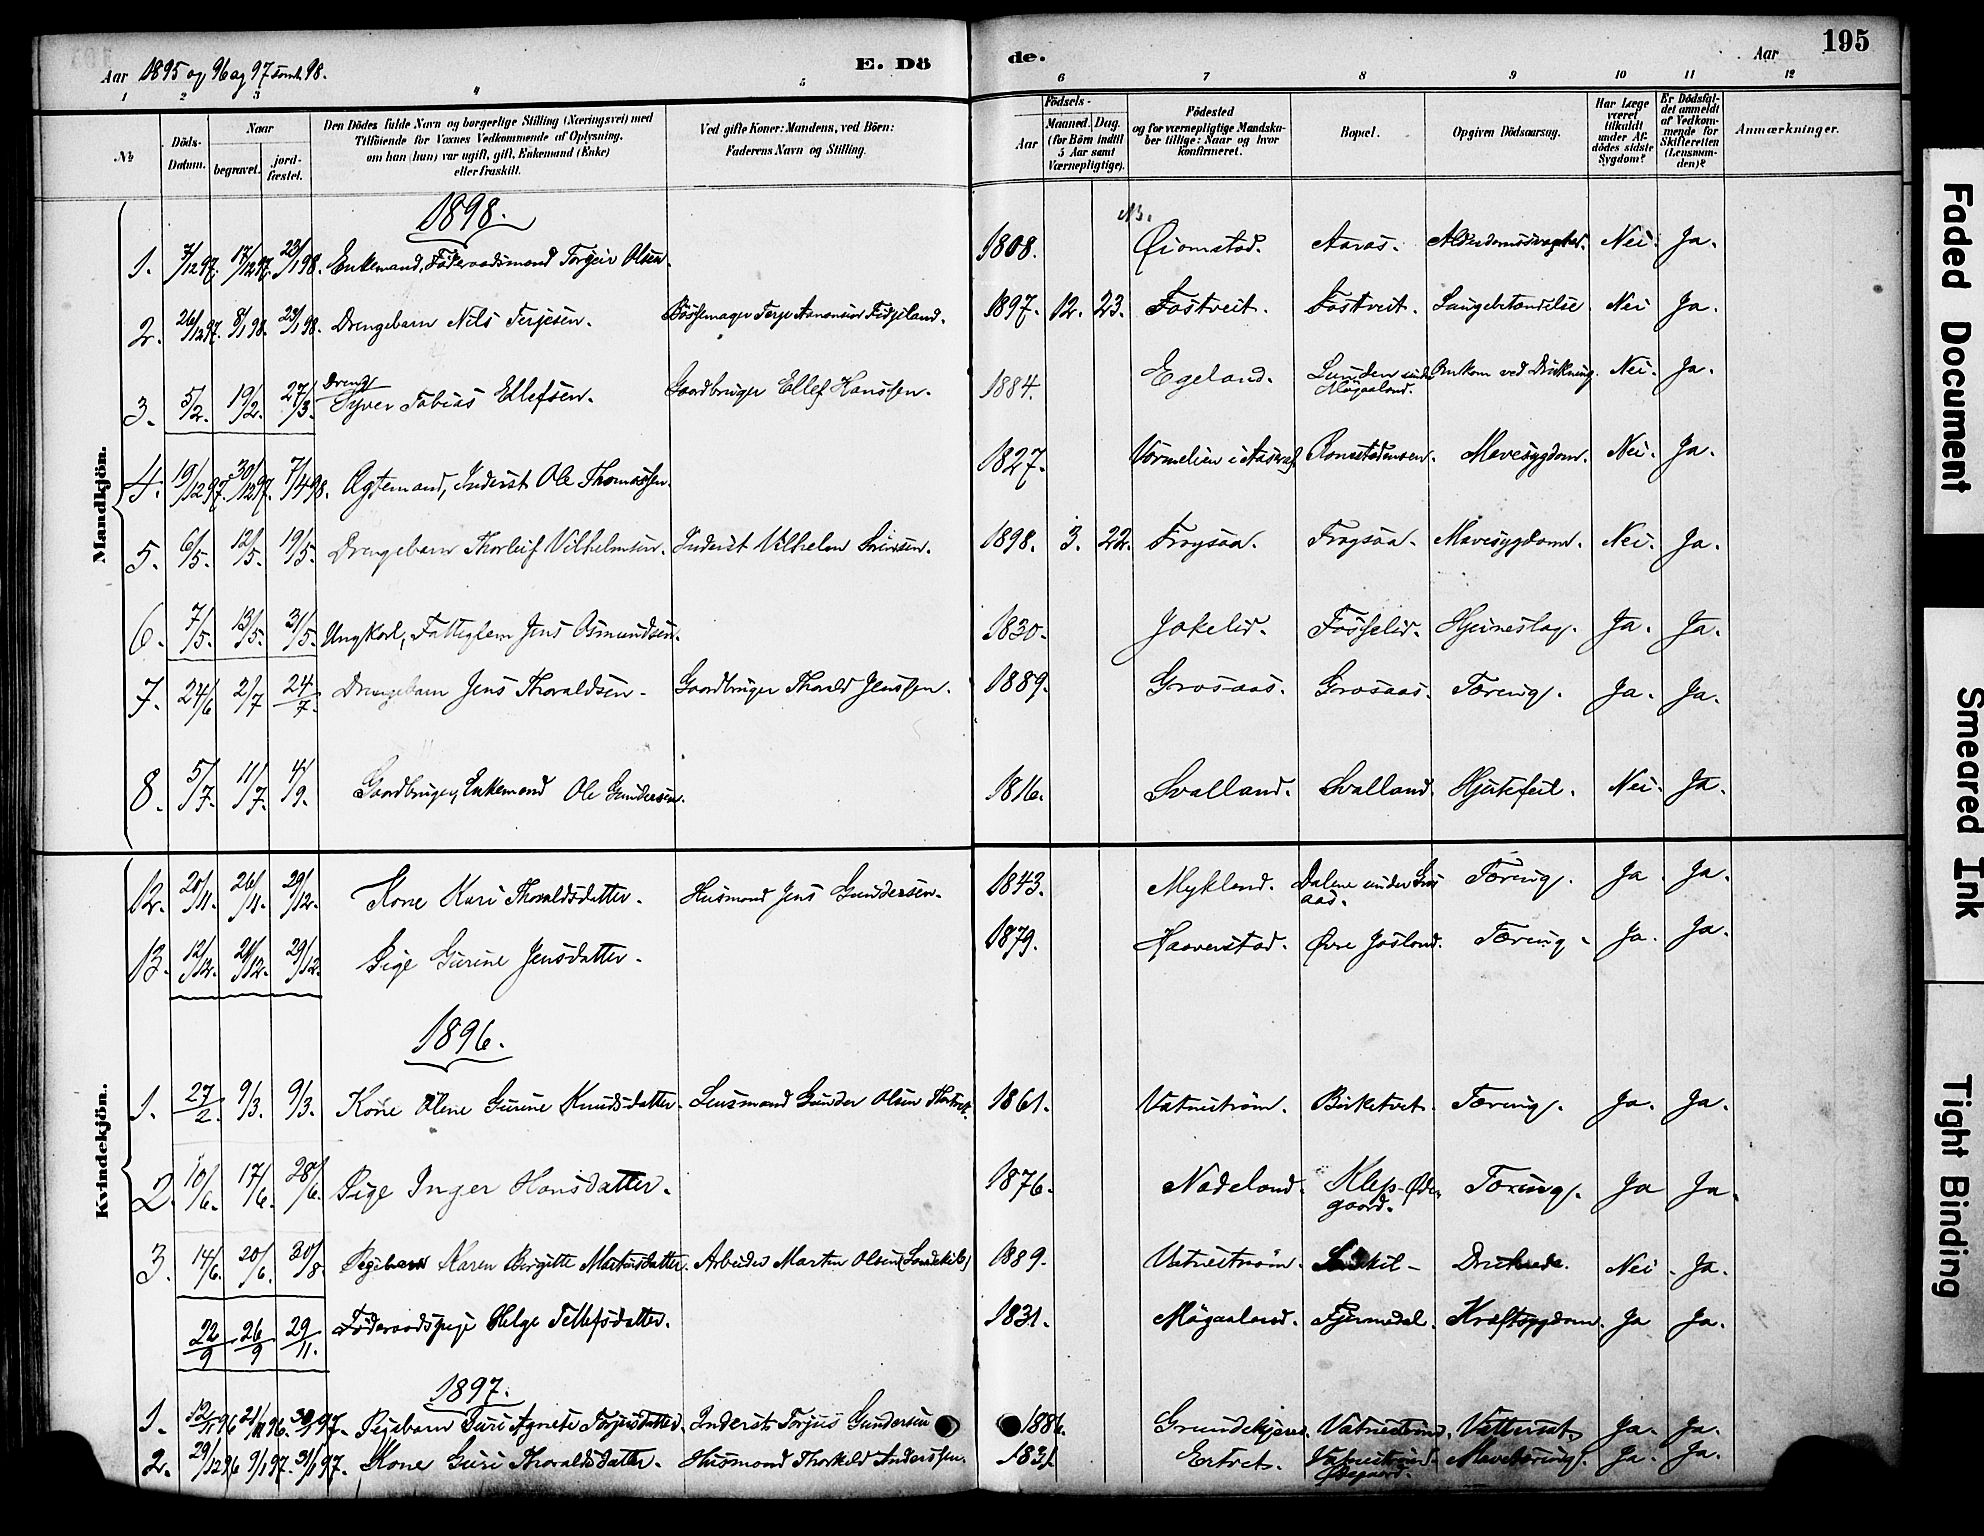 Aar 1895 og 96 og 97 samt 98.
E. Dö
de.
Aar
195
1 2 3 4 5 6 7 8 9 10 11 12
№
Döds-Datum.
Naar
begravet.
jord-fæstet.
Den Dödes fulde Navn og borgerlige Stilling (Næringsvei) med
Tilföiende for Voxnes Vedkommende af Oplysning,
om han (hun) var ugift, gift, Enkemand (Enke)
eller fraskilt.
Ved gifte Koner: Mandens, ved Börn:
Faderens Navn og Stilling.
Födsels-
Aar
Maaned. Dag.
(for Börn indtil
5 Aar samt
Værnepligtige).
Födested
og for værnepligtige Mandska-
ber tillige: Naar og hvor
konfirmeret.
Bopæl.
Opgiven Dödsaarsag.
Har Læge
været
tilkaldt
under Af-
dödes sidste
Sygdom?
Er Dödsfal-
det anmeldt
af Vedkom-
mende for
Skifteretten
(Lensman-
den)?
Anmærkninger.
Mandkjön.
1898.
1. 7/12 97. 17/12 97. 23/1 98. Enkemand, Föderaadsmand Torgeir Olsen. 1808. Øiomstad. Aaras. Alderdomssvaghed. Nei. Ja.
2. 26/12 97. 8/1 98. 23/1 98. Drengebarn Nils Terjesen. Bössemager Terje Aanonsen Fidjeland. 1897. 12. 23. Fostveit. Fostveit. Lungebetændelse Nei Ja.
3. 5/2. 19/2. 27/3. Dreng Syver Tobias Ellefsen. Gaardbruger Ellef Hanssen. 1884. Egeland. Lunden under Mögaaland. Omkom ved Drukning. Nei. Ja.
4. 19/12 97. 30/12 97. 7/4 98. Ægtemand, Inderst Ole Thomassen. 1827. Mavesygdom. Nei. Ja.
5. 6/5. 12/5. 19/5. Drengebarn Thorleif Vilhelmsen. Inderst Vilhelm Sörensen. 1898. 3. 22. Frøysaa. Frøysaa. Mavesygdom. Nei. Ja.
6. 7/5. 13/5. 31/5. Ungkarl, Fattiglem Jens Osmundsen. 1830. Jokelid. Fosselid. Hjerneslag. Ja. Ja.
7. 24/6 2/7 24/7. Drengebarn Jens Thoraldsen. Gaardbruger Thorald Jenssen. 1889. Grosaas. Grosaas. Tæring. Ja. Ja.
8. 5/7. 11/7. 4/9. Gaardbruger, Enkemand Ole Gundersen. 1816. Svalland. Svalland. Hjertefeil. Nei. Ja.
Kvindekjön.
12. 20/11. 26/11. 29/12. Kone Kari Thoraldsdatter. Husmand Jens Gundersen. 1843. Mykland. Dalene under Grosaas. Tæring. Ja. Ja.
13. 12/12. 21/12. 29/12. Pige Gurine Jensdatter. 1879. Haaverstad. Øvre Josland. Tæring. Ja. Ja.
1896.
1. 27/2 9/3. 9/3. Kone Olene Gurine Knudsdatter. Lensmand Gunder Olsen 1861. Vatneström. Birketvet. Tæring. Ja. Ja.
2. 10/6. 17/6. 28/6. Pige Inger Hansdatter. 1876. Nadeland. Klep-Ødegaard. Tæring. Ja Ja.
3. 14/6. 20/6. 30/8. Pigebarn Karen Birgitte Martinsdatter. Arbeider Martin Olsen (Sandekil) 1889. Vatneström. Druknede. Nei. Ja.
22/9 26/9 29/11. Föderaadspige Helge Tellefsdatter. 1831. Mögaaland. Fjermedal. Kræftsygdom. Ja Ja.
1897.
1. 21/11 96. Pigebarn Turi Agnete Torjusdatter. Inderst Torjus Gundersen 1886. Vatneström. Vattersot. Ja. Ja.
2. 29/12 96 9/1 97. 31/1 97. Kone Guri Thoraldsdatter. Husmand Thorkild Anderssen. 1831. Ertzet. Vatneström Ødegaard. Mavetæring. Ja. Ja.
Faded Document
Smeared Ink
Tight Binding